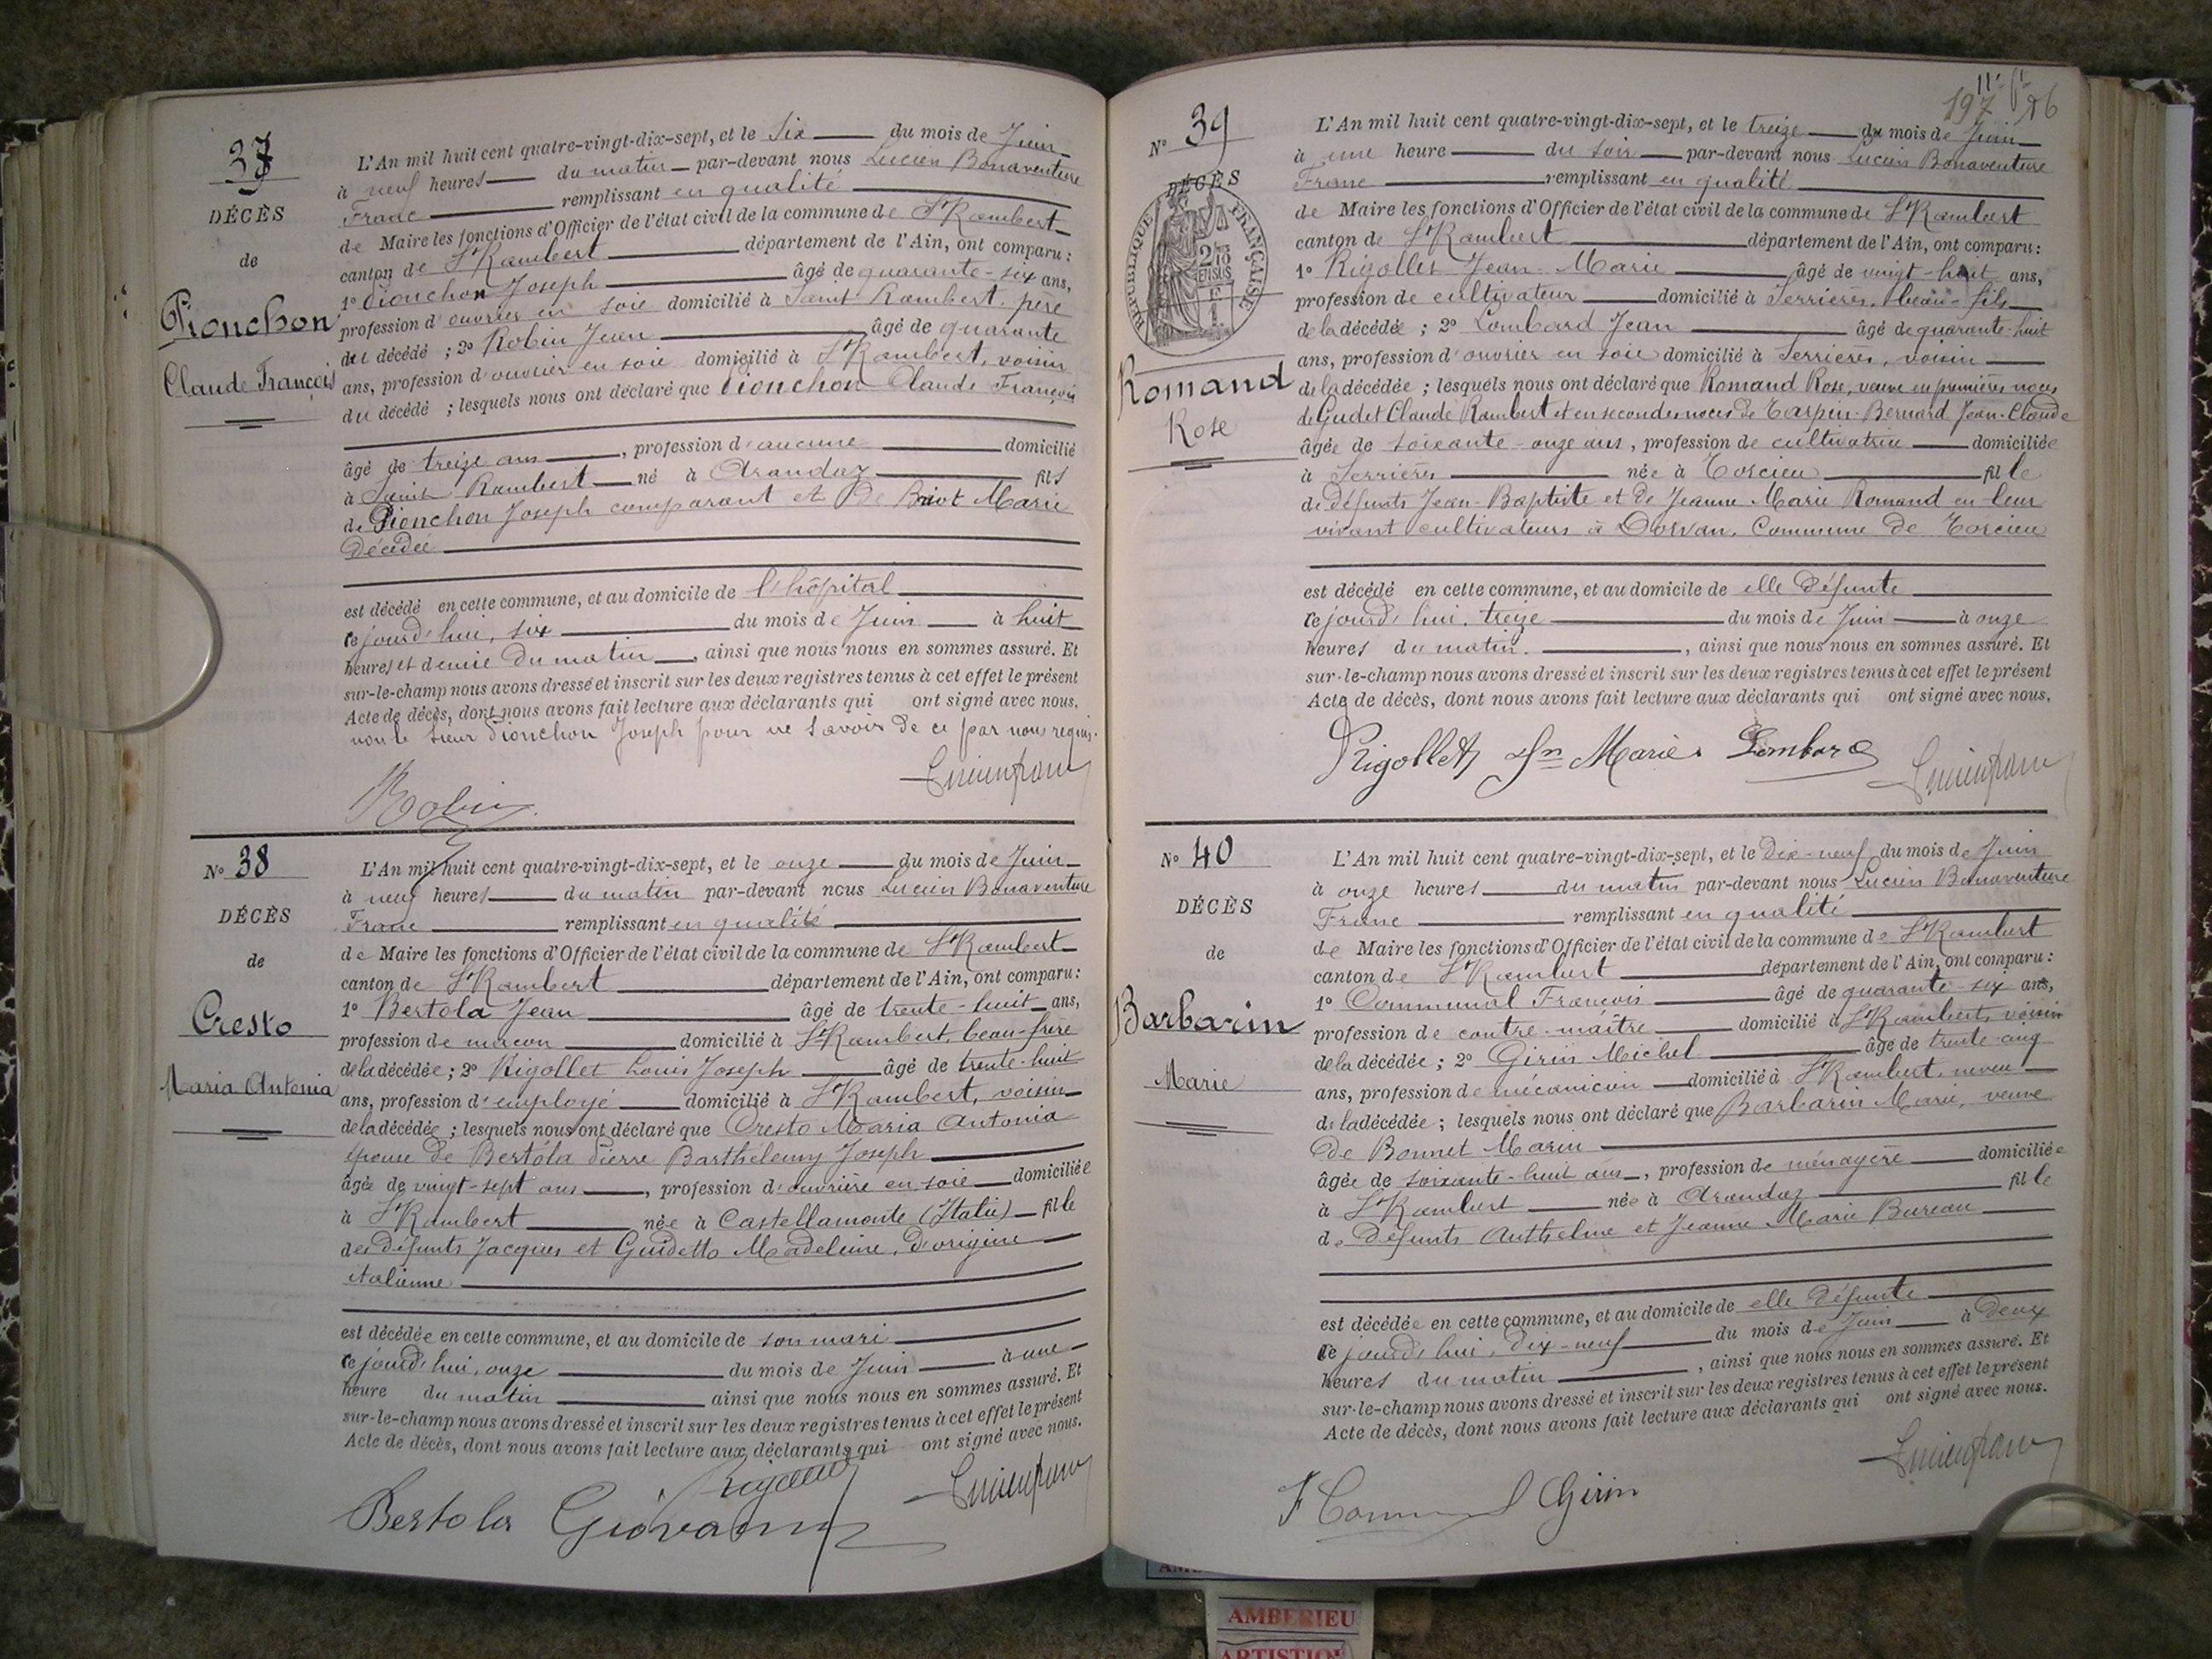 37
DÉCÈS
de
Pionchon
Claude François
L'An mil huit cent quatre-vingt-dix-sept, et le Six du mois de Juin
à neuf heures du matin par-devant nous Lucien Bonaventure
Franc remplissant en qualité
de Maire les fonctions d'Officier de l'état civil de la commune de St Rambert
canton de St Rambert département de l'Ain, ont comparu :
1° Pionchon Joseph âgé de quarante-six ans,
profession d'ouvrier en soie domicilié à Saint Rambert, père
du décédé ; 2° Robin Jean âgé de quarante
ans, profession d'ouvrier en soie domicilié à St Rambert, voisin
du décédé ; lesquels nous ont déclaré que Pionchon Claude François
âgé de treize ans, profession d'aucune domicilié
à Saint Rambert né à Arandaz fils
de Pionchon Joseph comparant et de Marie
décédée
est décédé en cette commune, et au domicile de l'hôpital
ce jourd'hui, six du mois de Juin à huit
heures et demie du matin, ainsi que nous nous en sommes assuré. Et
sur-le-champ nous avons dressé et inscrit sur les deux registres tenus à cet effet le présent
Acte de décès, dont nous avons fait lecture aux déclarants qui ont signé avec nous.
non le sieur Pionchon Joseph pour ne savoir de ce par nous requis.
Robin
Lucien franc
N° 38
DÉCÈS
de
Cresto
Maria Antonia
L'An mil huit cent quatre-vingt-dix-sept, et le onze du mois de Juin
à neuf heures du matin par-devant nous Lucien Bonaventure
Franc remplissant en qualité
de Maire les fonctions d'Officier de l'état civil de la commune de St Rambert
canton de St Rambert département de l'Ain, ont comparu :
1° Bertola Jean âgé de trente-huit ans,
profession de maçon domicilié à St Rambert, beau-frère
de la décédée ; 2° Rigollet Louis Joseph âgé de trente-huit
ans, profession d'employé domicilié à St Rambert, voisin
de la décédée ; lesquels nous ont déclaré que Cresto Maria Antonia
épouse de Bertola Pierre Barthelemy Joseph
âgée de vingt-sept ans, profession d'ouvrière en soie domiciliée
à St Rambert née à Castellamonte (Italie) fille
des défunts Jacques et Guidetto Madeleine, d'origine
italienne
est décédée en cette commune, et au domicile de son mari
ce jourd'hui, onze du mois de Juin à une
heure du matin ainsi que nous nous en sommes assuré. Et
sur-le-champ nous avons dressé et inscrit sur les deux registres tenus à cet effet le présent
Acte de décès, dont nous avons fait lecture aux déclarants qui ont signé avec nous.
Rigollet
Bertola Giovanni
Lucien franc
197
N° 39
DÉCÈS
RÉPUBLIQUE FRANÇAISE
2/10 EN SUS
Romand
Rose
L'An mil huit cent quatre-vingt-dix-sept, et le treize du mois de Juin
à une heure du soir par-devant nous Lucien Bonaventure
Franc remplissant en qualité
de Maire les fonctions d'Officier de l'état civil de la commune de St Rambert
canton de St Rambert département de l'Ain, ont comparu :
1° Rigollet Jean-Marie âgé de vingt-huit ans,
profession de cultivateur domicilié à Serrières, beau-fils
de la décédée ; 2° Lombard Jean âgé de quarante-huit
ans, profession d'ouvrier en soie domicilié à Serrières, voisin
de la décédée ; lesquels nous ont déclaré que Romand Rose, veuve en premières noces
de Gudet Claude Rambert et en secondes noces de Tarpin-Bernard Jean-Claude
âgée de soixante-onze ans, profession de cultivatrice domiciliée
à Serrières née à Torcieu fille
de défunts Jean-Baptiste et de Jeanne Marie Romand en leur
vivant cultivateurs à Dorvan, Commune de Torcieu
est décédé en cette commune, et au domicile de elle défunte
ce jourd'hui, treize du mois de Juin à onze
heures du matin, ainsi que nous nous en sommes assuré. Et
sur-le-champ nous avons dressé et inscrit sur les deux registres tenus à cet effet le présent
Acte de décès, dont nous avons fait lecture aux déclarants qui ont signé avec nous.
Rigollet Jn Marie Lombard
Lucien franc
N° 40
DÉCÈS
de
Barbarin
Marie
L'An mil huit cent quatre-vingt-dix-sept, et le dix-neuf du mois de Juin
à onze heures du matin par-devant nous Lucien Bonaventure
Franc remplissant en qualité
de Maire les fonctions d'Officier de l'état civil de la commune de St Rambert
canton de St Rambert département de l'Ain, ont comparu :
1° Communal François âgé de quarante-six ans,
profession de contre-maître domicilié à St Rambert, voisin
de la décédée ; 2° Girin Michel âgé de trente-cinq
ans, profession de mécanicien domicilié à St Rambert, neveu
de la décédée ; lesquels nous ont déclaré que Barbarin Marie, veuve
de Bonnet Marin
âgée de soixante-huit ans, profession de ménagère domiciliée
à St Rambert née à Arandaz fille
de défunts Anthelme et Jeanne Marie Bureau
est décédée en cette commune, et au domicile de elle défunte
ce jourd'hui, dix-neuf du mois de Juin à deux
heures du matin, ainsi que nous nous en sommes assuré. Et
sur-le-champ nous avons dressé et inscrit sur les deux registres tenus à cet effet le présent
Acte de décès, dont nous avons fait lecture aux déclarants qui ont signé avec nous.
Girin
Lucien franc
AMBERIEU